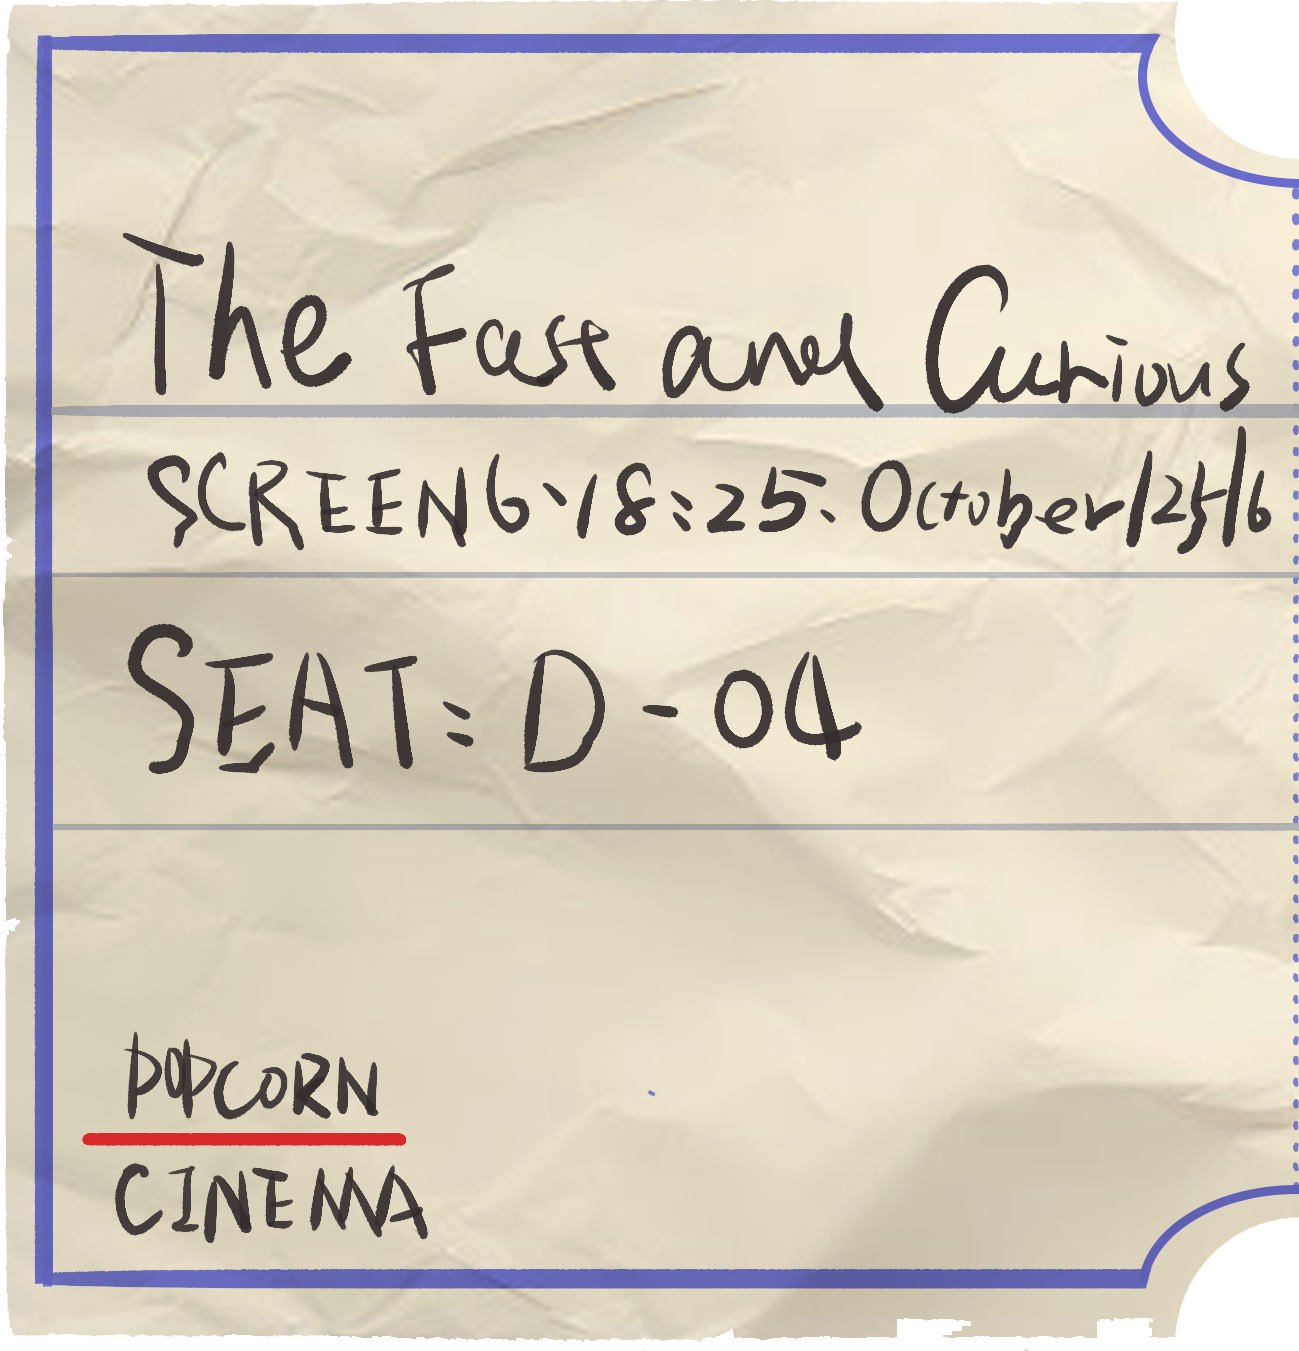 The Fast and Curious
SCREEN6·18:25·October/25/16
SEAT: D-04
POPCORN
CINEMA